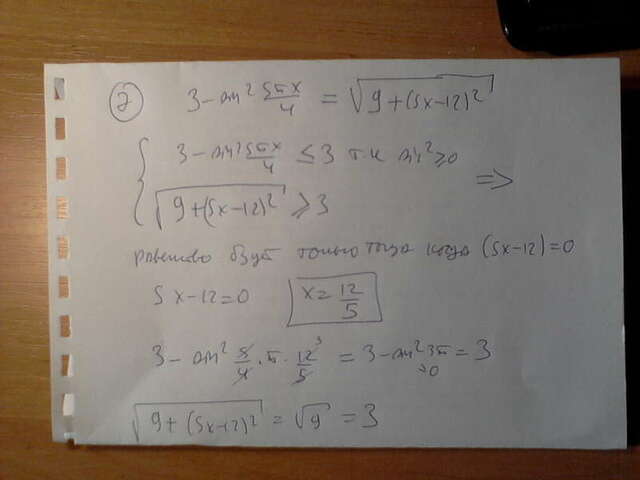 ② 3 - sin² 5πx/4 = √(9+(5x-12)²)
3 - sin² 5πx/4 ≤ 3 т.к sin² ≥ 0
√(9+(5x-12)²) ≥ 3 ⇒
равенство будет только тогда когда (5x-12)=0
5x-12=0 x = 12/5
3 - sin² 5/4 · π · 12/5 ³ = 3 - sin² 3π = 3
=0
√(9+(5x-12)²) = √9 = 3